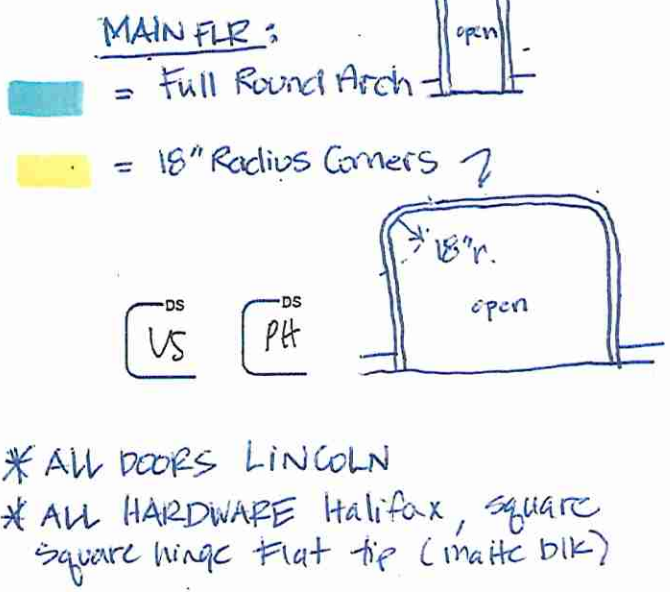 MAIN FLR :
open
= Full Round Arch
= 18" Radius Corners
18"r.
open
DS
VS
DS
PH
* ALL DOORS LINCOLN
* ALL HARDWARE Halifax, square
square hinge Flat tip (matte blk)